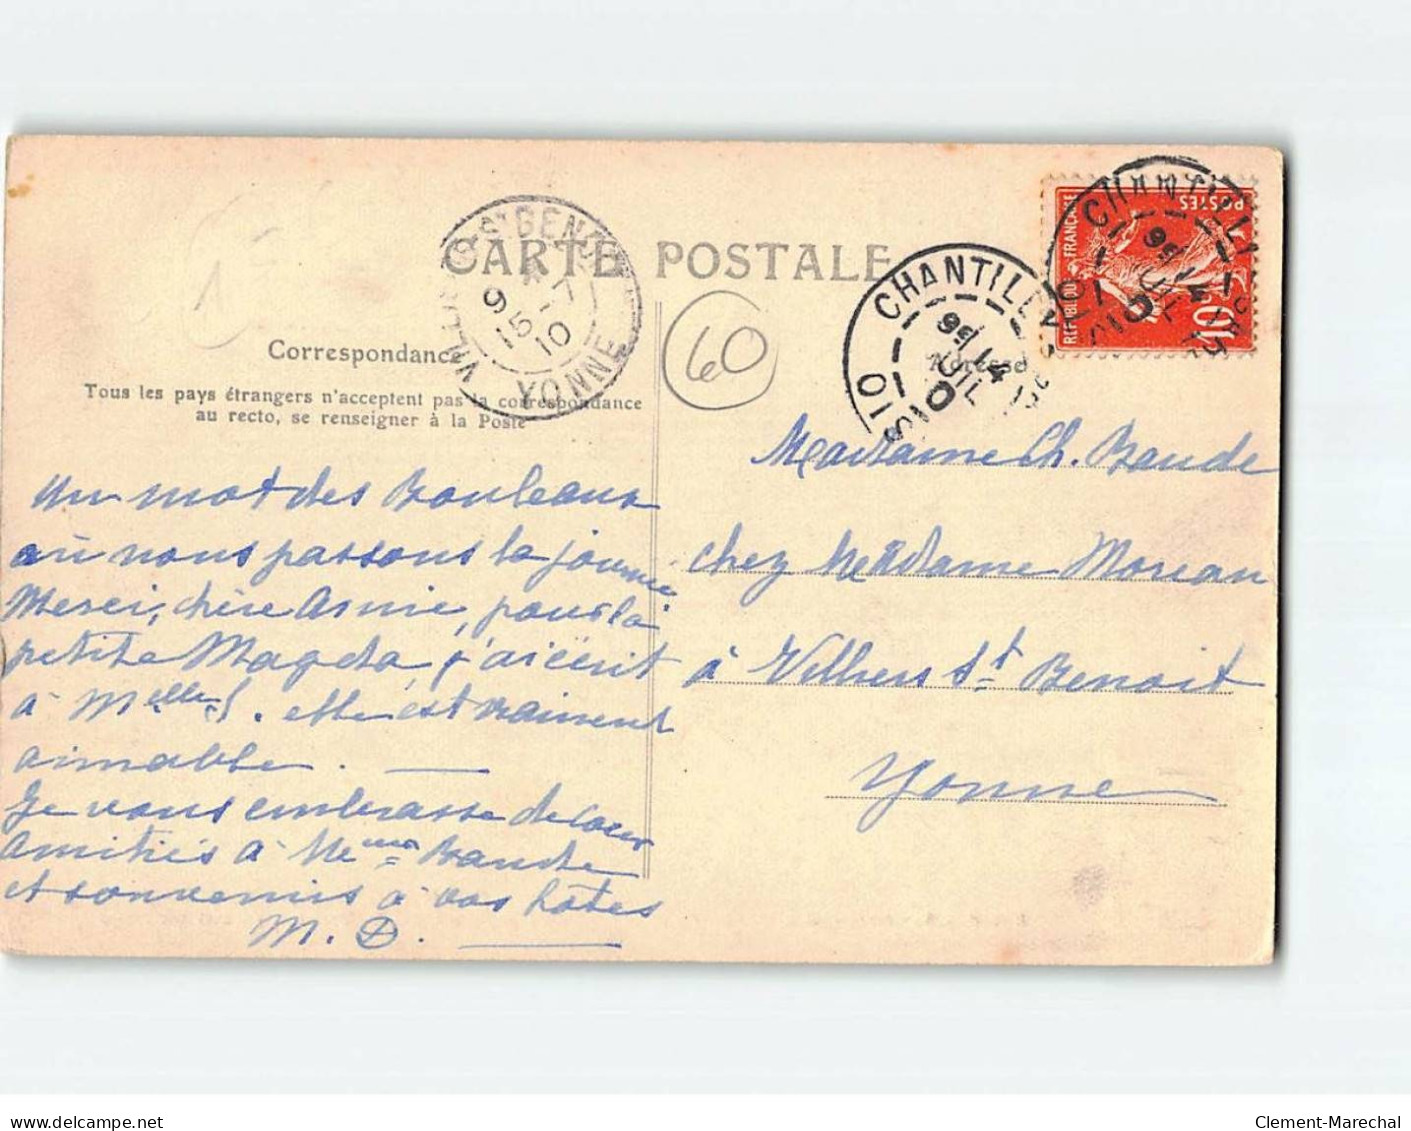 CARTE POSTALE
VILLIERS ST BENOIT
9 15-7 10
YONNE
60
CHANTILLY
14 JUIL 10
OISE
CHANTILLY
14 JUIL 10
RÉPUBLIQUE FRANÇAISE
POSTES
10
Correspondance
Tous les pays étrangers n'acceptent pas la correspondance
au recto, se renseigner à la Poste
Adresse
un mot des Bouleaux
où nous passons la journée
Merci, chère Annie, pour la
petite Magda, j'ai écrit
à Melle S. elle est vraiment
aimable.
Je vous embrasse de coeur
amitiés à Mme Baude
et souvenirs à vos hôtes
M. D.
Madame Ch. Baude
chez Madame Moreau
à Villiers St Benoit
Yonne
Clement-Marechal